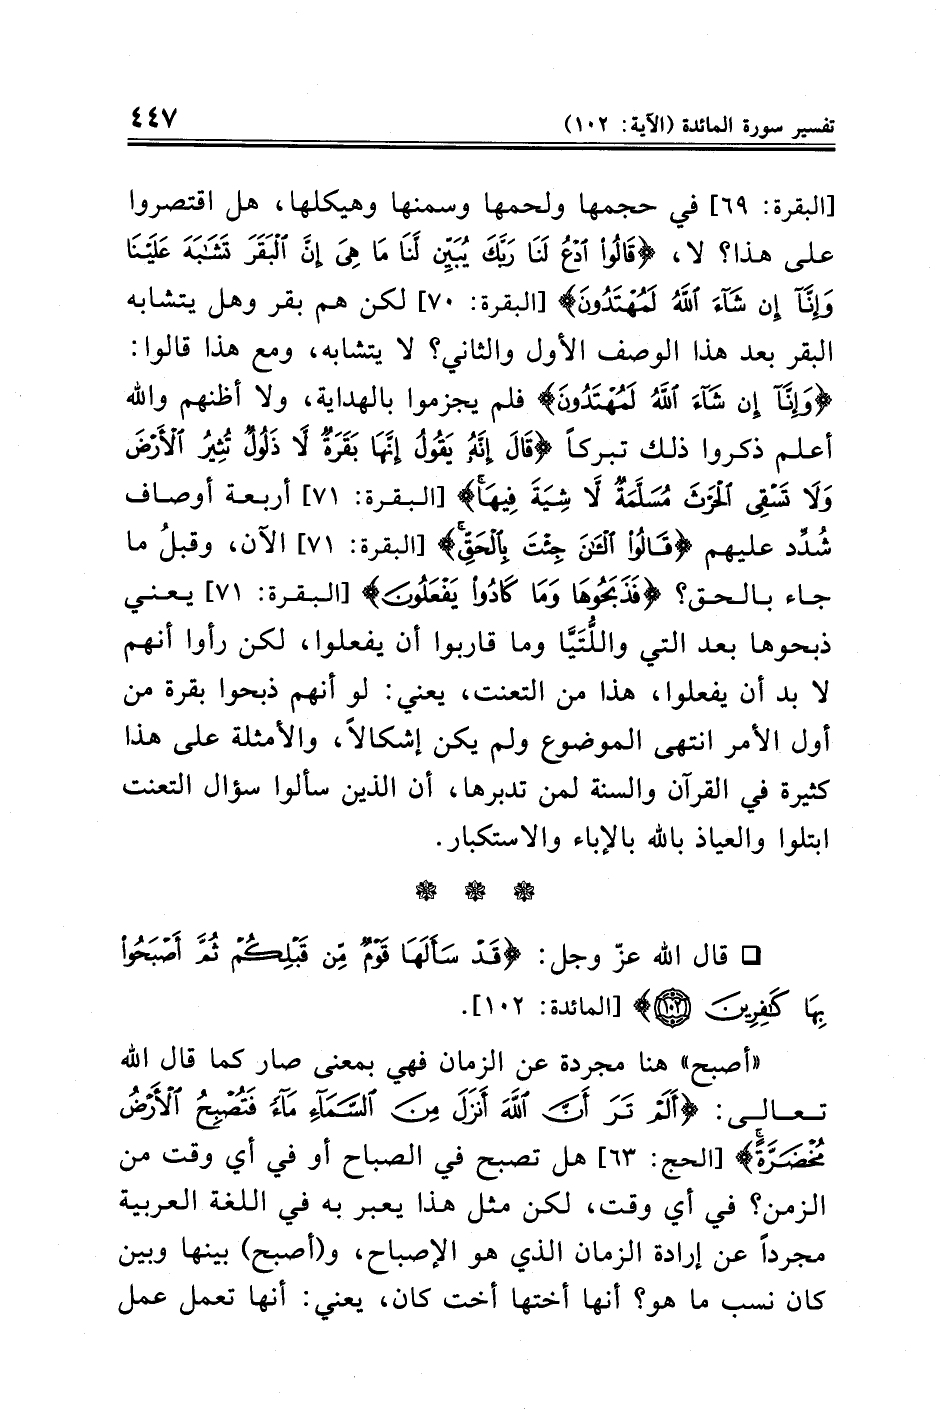 تفسير سورة المائدة (الآية: ١٠٢) ٤٤٧
[البقرة: ٦٩] في حجمها ولحمها وسمنها وهيكلها، هل اقتصروا
على هذا؟ لا، ﴿قَالُوا۟ ٱدْعُ لَنَا رَبَّكَ يُبَيِّن لَّنَا مَا هِىَ إِنَّ ٱلْبَقَرَ تَشَـٰبَهَ عَلَيْنَا
وَإِنَّآ إِن شَآءَ ٱللَّهُ لَمُهْتَدُونَ﴾ [البقرة: ٧٠] لكن هم بقر وهل يتشابه
البقر بعد هذا الوصف الأول والثاني؟ لا يتشابه، ومع هذا قالوا:
﴿وَإِنَّآ إِن شَآءَ ٱللَّهُ لَمُهْتَدُونَ﴾ فلم يجزموا بالهداية، ولا أظنهم والله
أعلم ذكروا ذلك تبركاً ﴿قَالَ إِنَّهُۥ يَقُولُ إِنَّهَا بَقَرَةٌ لَّا ذَلُولٌ تُثِيرُ ٱلْأَرْضَ
وَلَا تَسْقِى ٱلْحَرْثَ مُسَلَّمَةٌ لَّا شِيَةَ فِيهَا ۚ﴾ [البقرة: ٧١] أربعة أوصاف
شُدِّد عليهم ﴿قَالُوا۟ ٱلْـَٔـٰنَ جِئْتَ بِٱلْحَقِّ ۚ﴾ [البقرة: ٧١] الآن، وقبلُ ما
جاء بالحق؟ ﴿فَذَبَحُوهَا وَمَا كَادُوا۟ يَفْعَلُونَ﴾ [البقرة: ٧١] يعني
ذبحوها بعد التي واللُّتَيَّا وما قاربوا أن يفعلوا، لكن رأوا أنهم
لا بد أن يفعلوا، هذا من التعنت، يعني: لو أنهم ذبحوا بقرة من
أول الأمر انتهى الموضوع ولم يكن إشكالاً، والأمثلة على هذا
كثيرة في القرآن والسنة لمن تدبرها، أن الذين سألوا سؤال التعنت
ابتلوا والعياذ بالله بالإباء والاستكبار.
❁ ❁ ❁
□ قال الله عزّ وجل: ﴿قَدْ سَأَلَهَا قَوْمٌ مِّن قَبْلِكُمْ ثُمَّ أَصْبَحُوا۟
بِهَا كَـٰفِرِينَ ١٠٢﴾ [المائدة: ١٠٢].
«أصبح» هنا مجردة عن الزمان فهي بمعنى صار كما قال الله
تعالى: ﴿أَلَمْ تَرَ أَنَّ ٱللَّهَ أَنزَلَ مِنَ ٱلسَّمَآءِ مَآءً فَتُصْبِحُ ٱلْأَرْضُ
مُخْضَرَّةً ۗ﴾ [الحج: ٦٣] هل تصبح في الصباح أو في أي وقت من
الزمن؟ في أي وقت، لكن مثل هذا يعبر به في اللغة العربية
مجرداً عن إرادة الزمان الذي هو الإصباح، و(أصبح) بينها وبين
كان نسب ما هو؟ أنها أختها أخت كان، يعني: أنها تعمل عمل